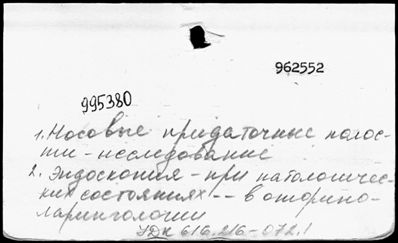 962552
995380
1. Носовые придаточные полос-
ти - исследование
2. Эндоскопия - при патологичес-
ких состояниях -- в оторино-
ларингологии
УДК 616.216-072.1